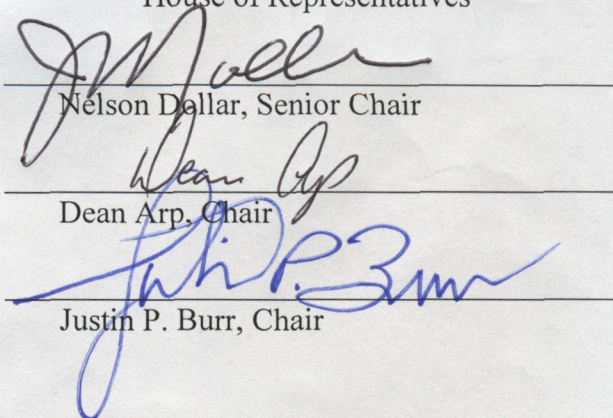 House of Representatives
Nelson Dollar, Senior Chair
Dean Arp
Dean Arp, Chair
Justin P. Burr
Justin P. Burr, Chair